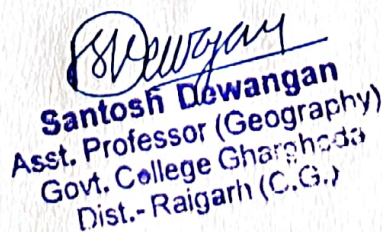 SDewangan
Santosh Dewangan
Asst. Professor (Geography)
Govt. College Gharghoda
Dist.- Raigarh (C.G.)